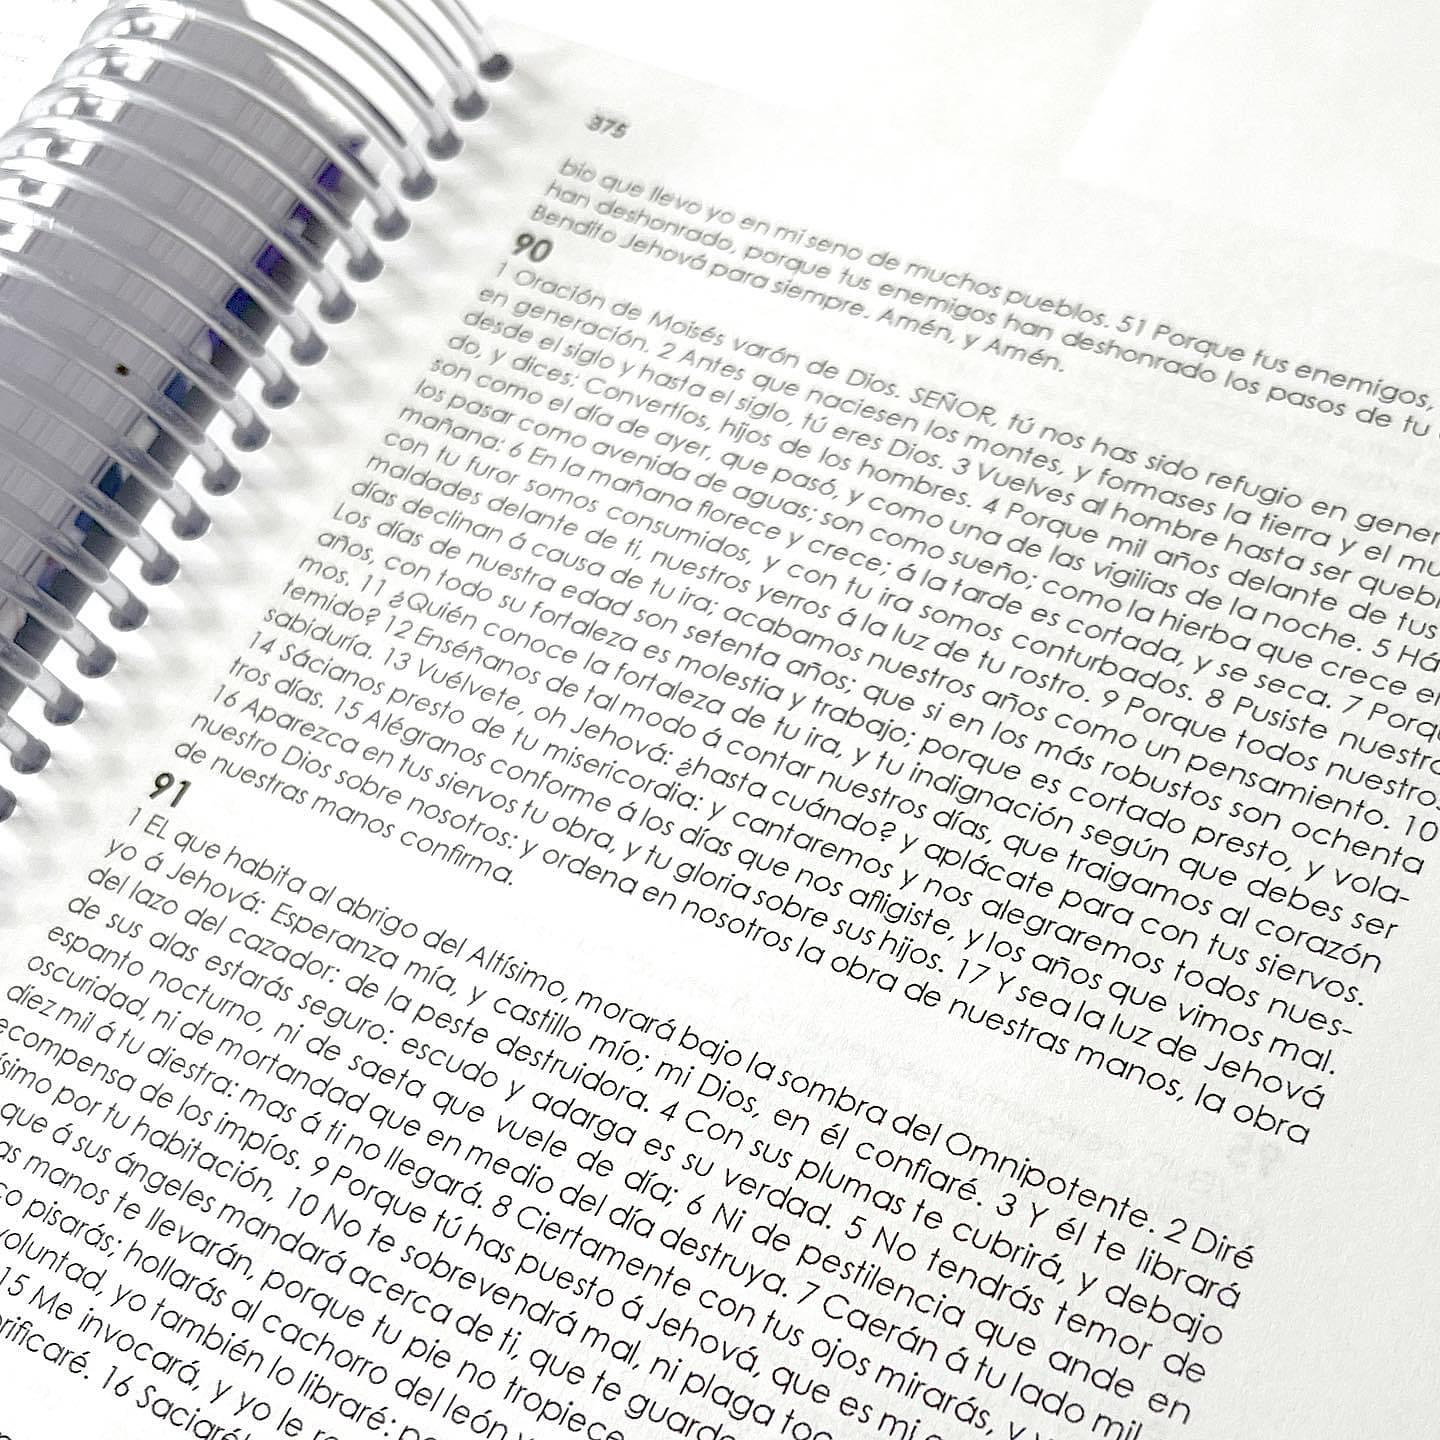 375
bio que llevo yo en mi seno de muchos pueblos. 51 Porque tus enemigos,
han deshonrado, porque tus enemigos han deshonrado los pasos de tu
Bendito Jehová para siempre. Amén, y Amén.
90
1 Oración de Moisés varón de Dios. SEÑOR, tú nos has sido refugio en gener
en generación. 2 Antes que naciesen los montes, y formases la tierra y el mu
desde el siglo y hasta el siglo, tú eres Dios. 3 Vuelves al hombre hasta ser quebr
do, y dices: Convertíos, hijos de los hombres. 4 Porque mil años delante de tus
son como el día de ayer, que pasó, y como una de las vigilias de la noche. 5 Há
los pasar como avenida de aguas; son como sueño; como la hierba que crece en
mañana: 6 En la mañana florece y crece; á la tarde es cortada, y se seca. 7 Porqu
con tu furor somos consumidos, y con tu ira somos conturbados. 8 Pusiste nuestra
maldades delante de ti, nuestros yerros á la luz de tu rostro. 9 Porque todos nuestros
días declinan á causa de tu ira; acabamos nuestros años como un pensamiento. 10
Los días de nuestra edad son setenta años; que si en los más robustos son ochenta
años, con todo su fortaleza es molestia y trabajo; porque es cortado presto, y vola-
mos. 11 ¿Quién conoce la fortaleza de tu ira, y tu indignación según que debes ser
temido? 12 Enséñanos de tal modo á contar nuestros días, que traigamos al corazón
sabiduría. 13 Vuélvete, oh Jehová: ¿hasta cuándo? y aplácate para con tus siervos.
14 Sácianos presto de tu misericordia: y cantaremos y nos alegraremos todos nues-
tros días. 15 Alégranos conforme á los días que nos afligiste, y los años que vimos mal.
16 Aparezca en tus siervos tu obra, y tu gloria sobre sus hijos. 17 Y sea la luz de Jehová
nuestro Dios sobre nosotros: y ordena en nosotros la obra de nuestras manos, la obra
de nuestras manos confirma.
91
1 EL que habita al abrigo del Altísimo, morará bajo la sombra del Omnipotente. 2 Diré
yo á Jehová: Esperanza mía, y castillo mío; mi Dios, en él confiaré. 3 Y él te librará
del lazo del cazador: de la peste destruidora. 4 Con sus plumas te cubrirá, y debajo
de sus alas estarás seguro: escudo y adarga es su verdad. 5 No tendrás temor de
espanto nocturno, ni de saeta que vuele de día; 6 Ni de pestilencia que ande en
oscuridad, ni de mortandad que en medio del día destruya. 7 Caerán á tu lado mil,
diez mil á tu diestra: mas á ti no llegará. 8 Ciertamente con tus ojos mirarás, y
ecompensa de los impíos. 9 Porque tú has puesto á Jehová, que es mi
ísimo por tu habitación, 10 No te sobrevendrá mal, ni plaga toc
que á sus ángeles mandará acerca de ti, que te guard
as manos te llevarán, porque tu pie no tropiece
co pisarás; hollarás al cachorro del león y
voluntad, yo también lo libraré:
15 Me invocará, y yo le
rificaré. 16 Saciaré